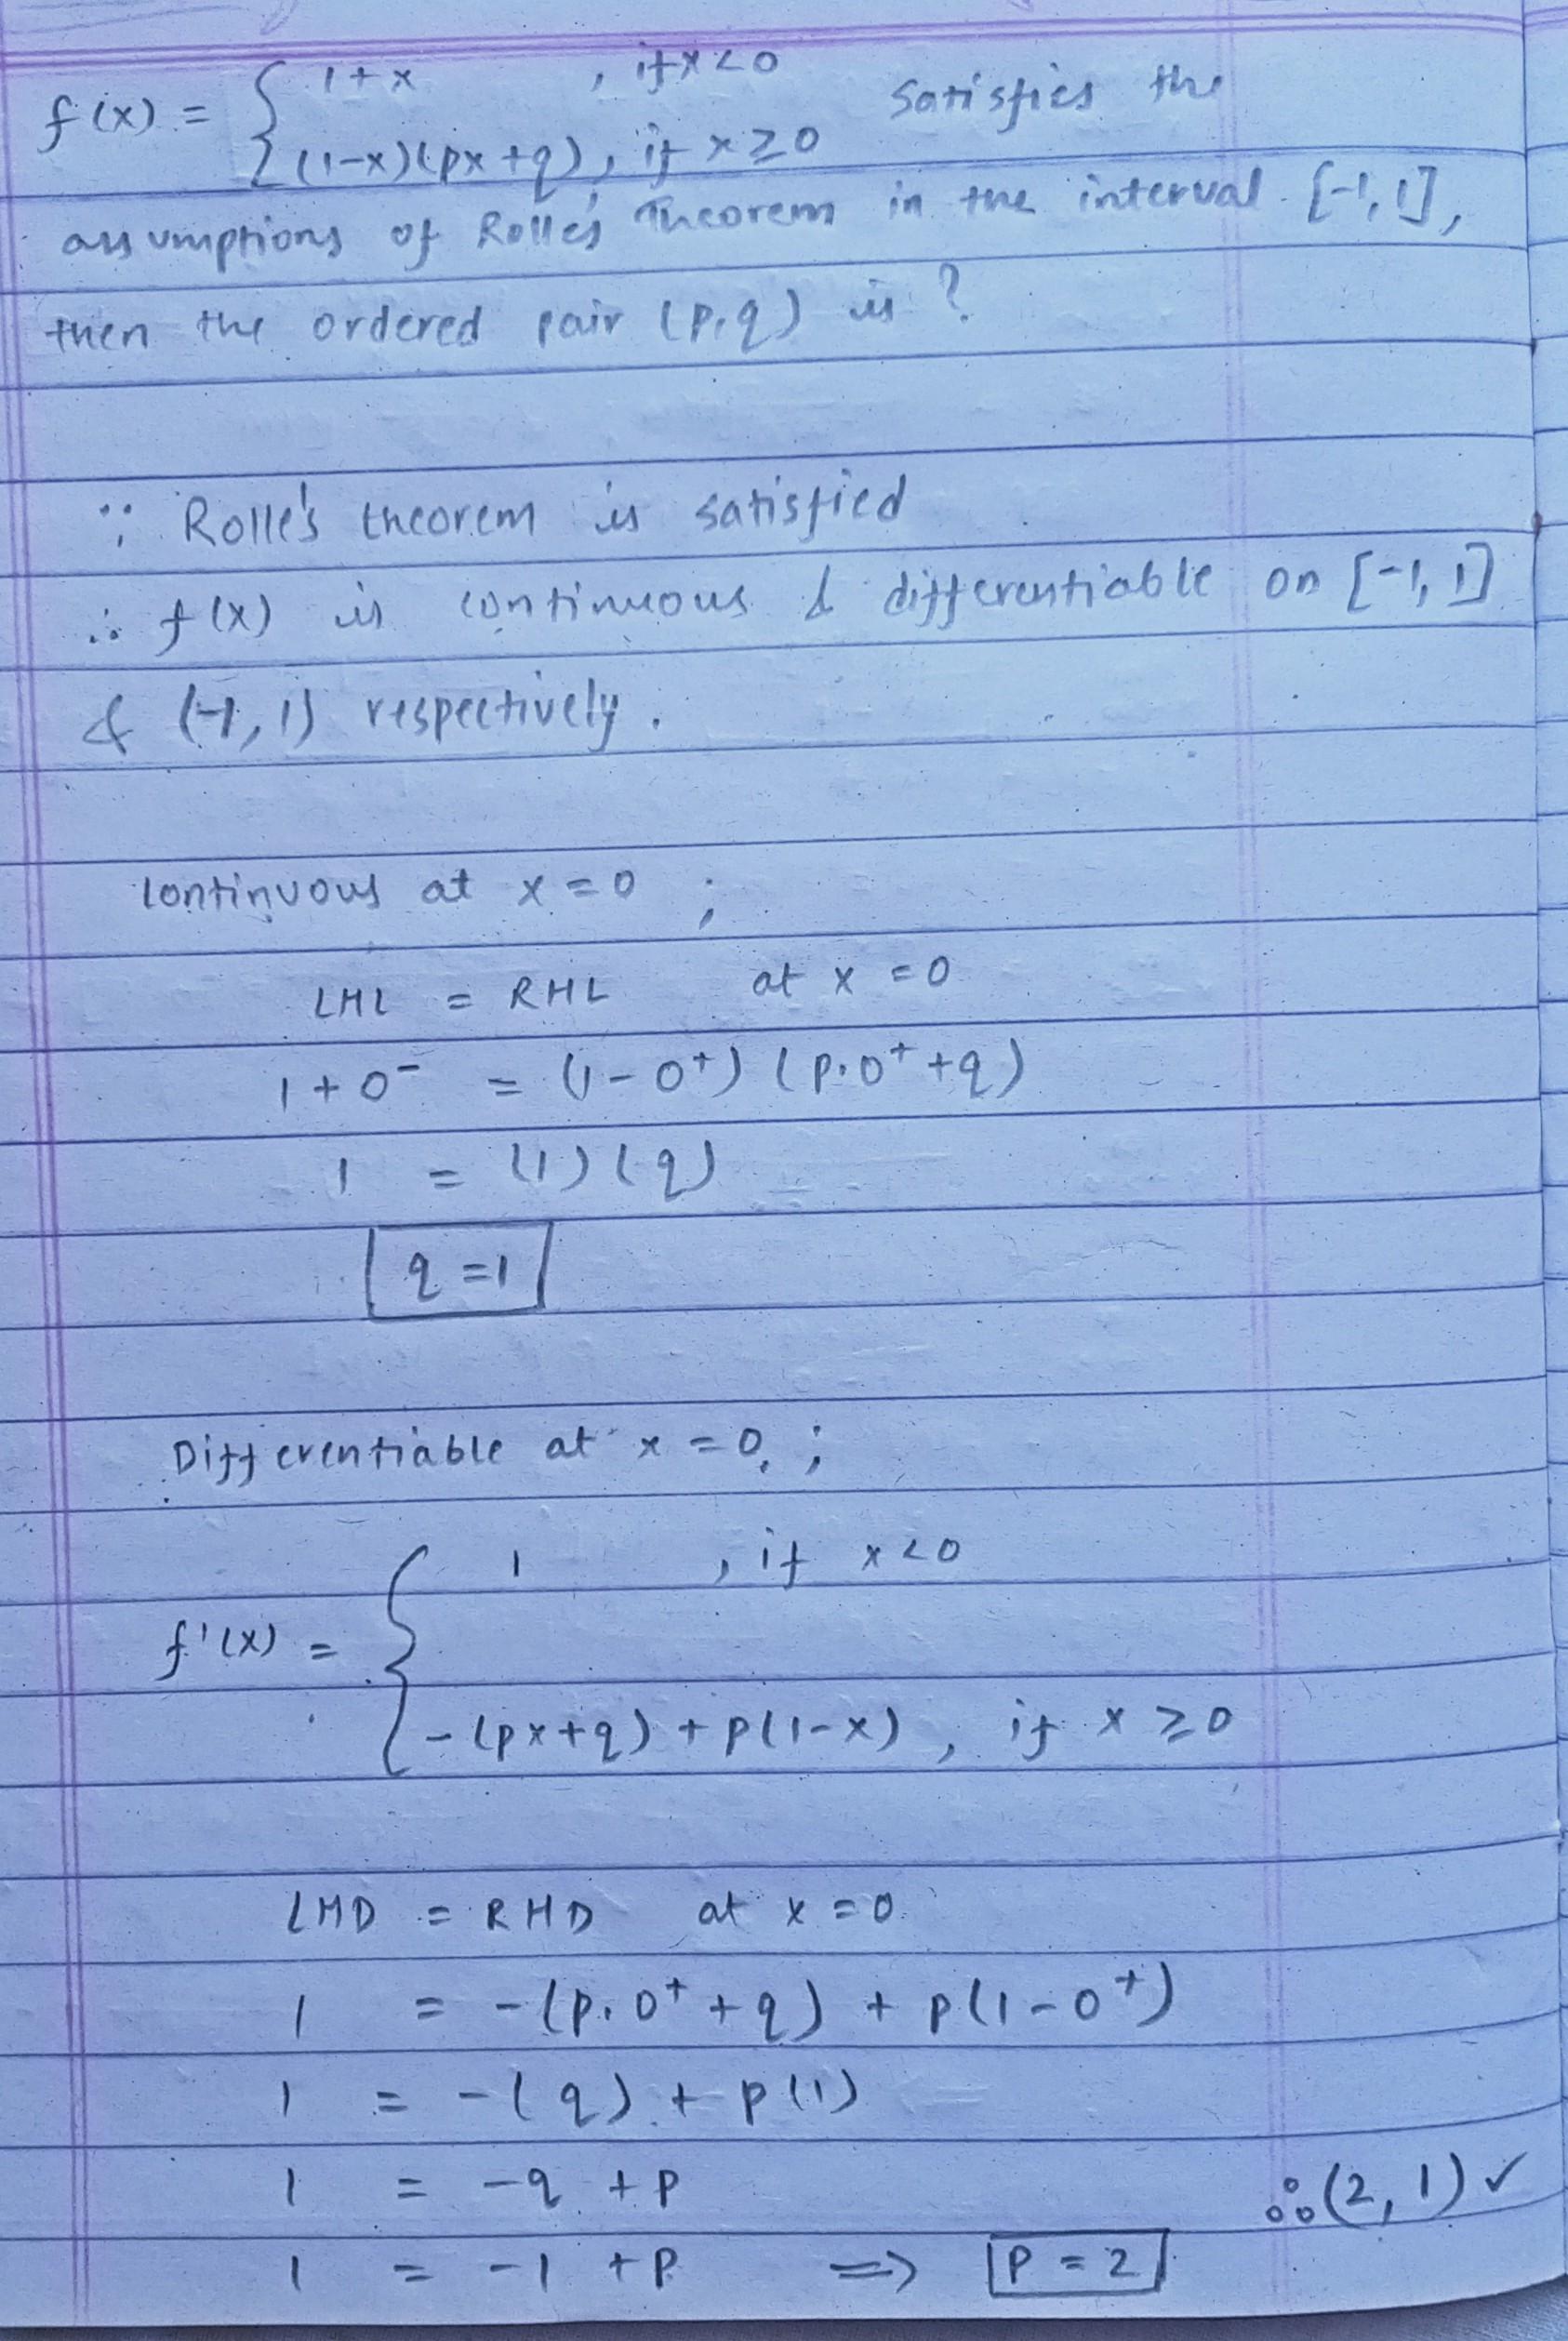 f(x) = { 1+x , if x<0
(1-x)(px+q), if x≥0 satisfies the
assumptions of Rolle's Theorem in the interval [-1, 1],
then the ordered pair (p,q) is ?
∵ Rolle's theorem is satisfied
∴ f(x) is continuous & differentiable on [-1, 1]
& (-1, 1) respectively.
continuous at x = 0 ;
LHL = RHL at x = 0
1 + 0⁻ = (1-0⁺) (p.0⁺+q)
1 = (1)(q)
q = 1
Differentiable at x = 0, ;
f'(x) = { 1 , if x<0
-(px+q) + p(1-x) , if x ≥ 0
LHD = RHD at x = 0
1 = -(p.0⁺+q) + p(1-0⁺)
1 = -(q) + p(1)
1 = -q + p
∴(2, 1) ✓
1 = -1 + p ⇒ p = 2